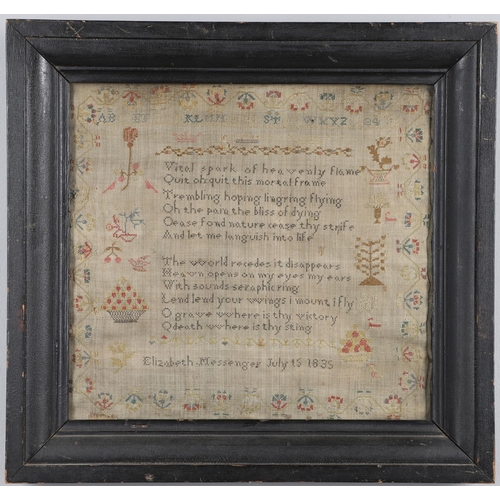 AB EF KLMN ST WXYZ
Vital spark of heavenly flame
Quit oh quit this mortal frame
Trembling hoping lingring flying
Oh the pain the bliss of dying
Cease fond nature cease thy strife
And let me languish into life
The world recedes it disappears
Heavn opens on my eyes my ears
With sounds seraphic ring
Lend lend your wings i mount i fly
O grave where is thy victory
O death where is thy sting
Elizabeth Messenger July 15 1835